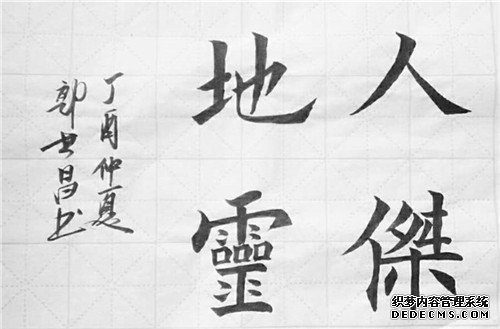 人傑
地靈
丁酉仲夏
郭世昌书
织梦内容管理系统
DEDECMS.COM